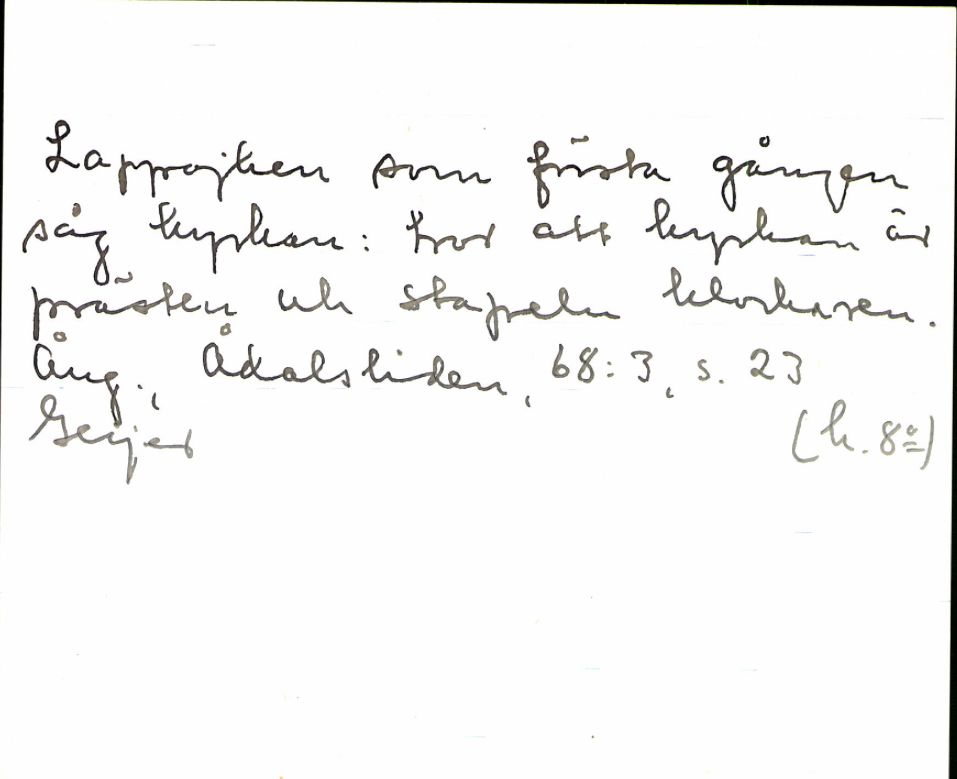 Lappojken som första gången
såg kyrkan: tror att kyrkan är
prästen och stapeln klockaren.
Ång., Ådalsliden, 68:3, s. 23
Geijer (h. 8º)